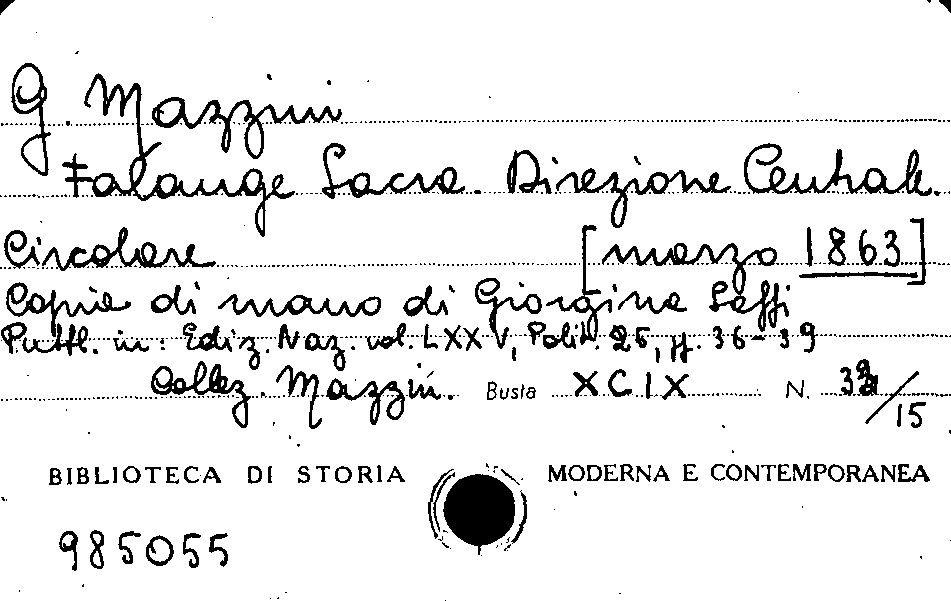 G. Mazzini
Falange Sacra. Direzione Centrale.
Circolare [marzo 1863]
Copia di mano di Giorgina Saffi
Pubbl. in: Ediz. Naz. vol. LXXV, Polit. 25, pp. 36-39
Collez. Mazzini. Busta XCIX N. /15
BIBLIOTECA DI STORIA MODERNA E CONTEMPORANEA
985055